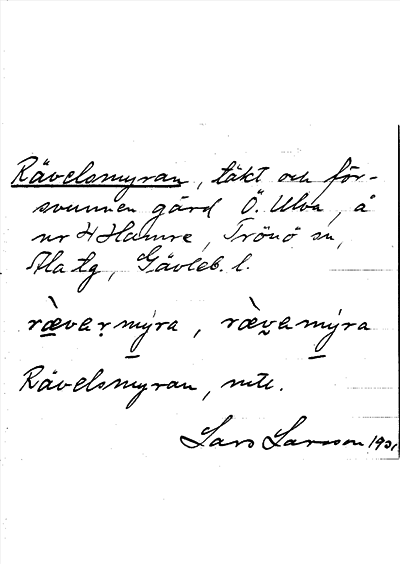 Rävelsmyran, täkt och för-
svunnen gård Ö. Ulva, å
nr 4 Hamre, Trönö sn,
Ala tg, Gävleb. l.
ræ̀vaṛmýra, ræ̀vamýra
Rävelsmyran, mtl.
Lars Larsson 1931